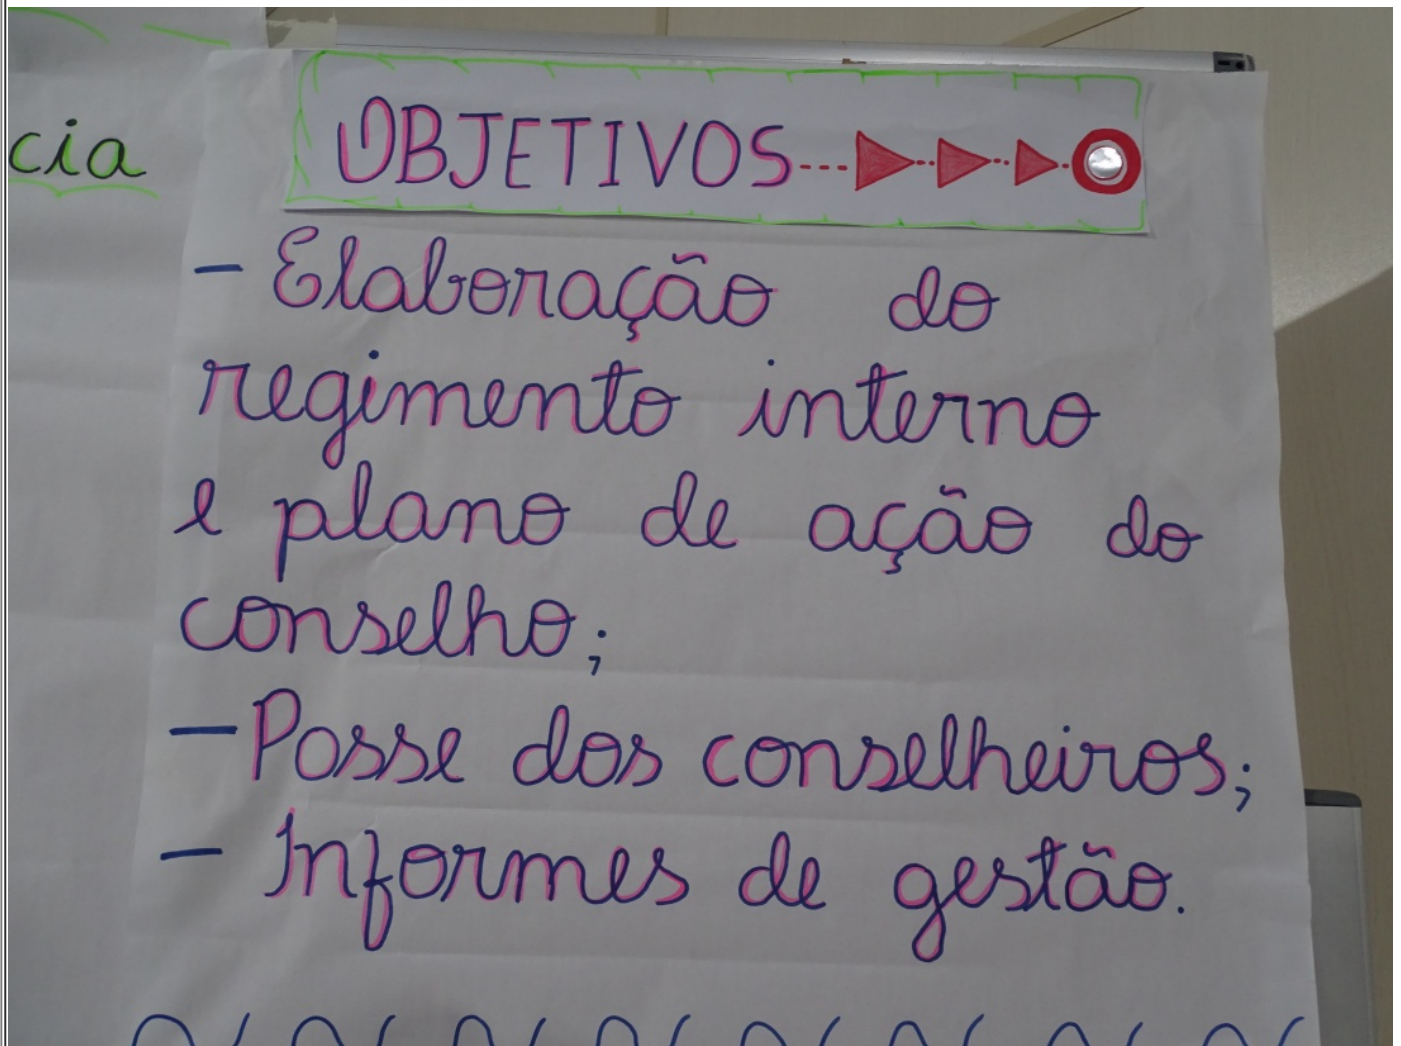 cia
OBJETIVOS
- Elaboração do
regimento interno
e plano de ação do
conselho;
- Posse dos conselheiros;
- Informes de gestão.